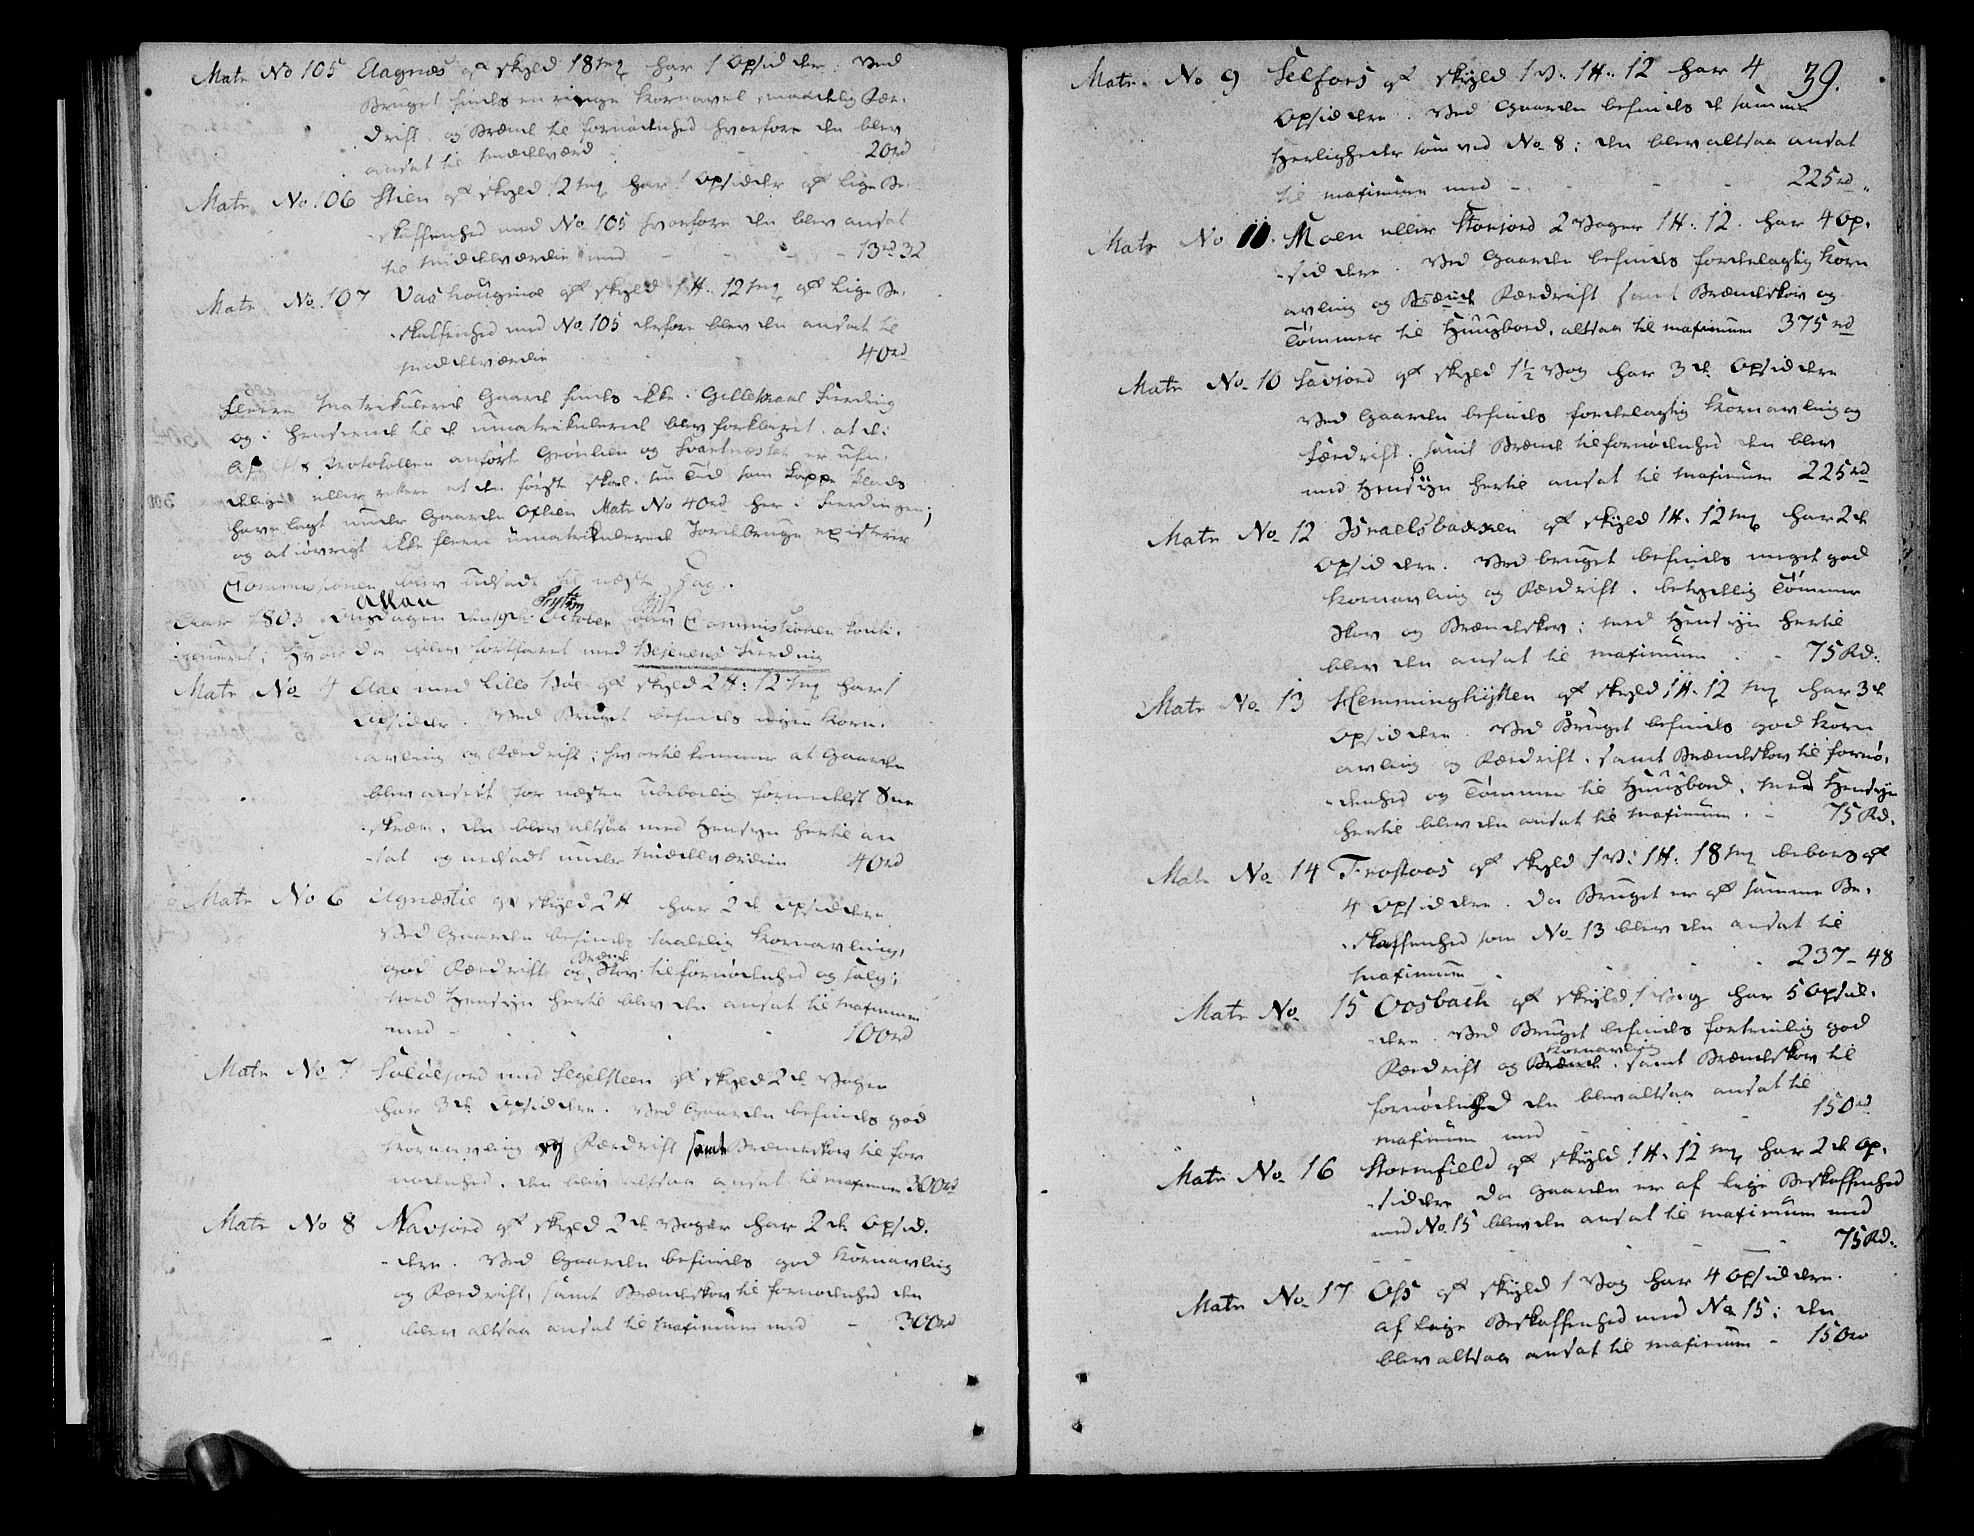 Matr No 105 Elagnæs af skyld 18 mk har 1 Opsidder. Ved
Bruget findes en ringe Kornavel, maadelig Fæe-
drift og Brænde til fornødenhed hvorfore den blev
ansat til Middelværd 20rd
Matr No. 106 Stien af skyld 12 mk har 1 Opsidder af lige Be-
skaffenhed med No 105 hvorfore den blev ansat
til Middelværdie med - - - 13rd 32
Matr No. 107 af skyld 1 H. 12 mk af lige Be-
skaffenhed med No. 105 derfore blev den ansat til
Middelværdie 40rd
Fleere Matrikulerede Gaarde findes ikke i Fierding
og i Henseende til de umatrikulerede blev forklaret at de i
Protokollen anførte Grønlien og Svartnæstet er
eller rettere at den første skal i sin Tid som Plads
have lagt under Gaarden Matr No 40 her i Fierdingen;
og at iøvrigt ikke fleere umatrikulerede Jordebruge existerer
Commissionen blev Udsadt til næste Dag.
Aar 1803 Onsdagen den 19de October blev Commissionen conti-
nueret; hvor da blev fortfaret med Fierding
Matr No 4 med Lille af skyld 2 H. 12 mk har 1
Opsidder. Ved Bruget befindes Korn-
avling og Fædrift; hvortil kommer at Gaarden
blev anseet for næsten ubeboelig formedelst Snee
skræe. den blev altsaa med Hensyn hertil an
sat og nedsadt under Middelværdien 40rd
Matr No 6 af skyld 2 H har 2de Opsiddere
Ved Gaarden befindes taalelig Kornavling,
god Fædrift og Brænde Skov til fornødenhed og salg;
med Hensyn hertil blev den ansat til Maximum
med - 100rd
Matr No 7 med Segelsteen af skyld 2de Voger
har 3de Opsiddere. Ved Gaarden befindes god
Kornavling og Fædrift samt Brændeskov til for
nødenhed. den blev altsaa ansat til maximum 300rd
Matr No 8 Navjord af skyld 2de Voger har 2de Opsid-
dere. Ved Gaarden befindes god Kornavling
og Fædrift, samt Brændeskov til fornødenhed den
blev altsaa ansat til Maximum med - 300rd
39.
Matr. No 9 Selfors af skyld 1 V. 1 H. 12 har 4
Opsiddere. Ved Gaarden befindes de samme
Herligheder som ved No 8; den blev altsaa ansat
til maximum med - - - 225rd
Matr No 11. Moen eller Storjord 2 Voger 1 H. 12. har 4 Op-
siddere. Ved Gaarden befindes fordelagtig Korn
avling og Fædrift samt Brændeskov og
Tømmer til Huusbord. altsaa til maximum 375rd
Matr No. 10 Savjord af skyld 1½ Vog har 3de Opsiddere
Ved Gaarden befindes fordelagtig Kornavling og
Fædrift. samt Brænde til fornødenhed den blev
med Hensyn hertil ansat til Maximum 225rd
Matr No. 12 Israelsbacken af skyld 1 H. 12 mk har 2de
Opsiddere. Ved bruget befindes meget god
Kornavling og Fædrift. betydelig Tømmer
Skov og Brændeskov; med Hensyn hertil
blev den ansat til maximum - 75 Rd.
Matr No. 13 Hemminghytten af skyld 1 H. 12 mk har 3de
Opsiddere. Ved Bruget befindes god Korn
avling og Fædrift. samt Brændeskov til fornø-
denhed og Tømmer til Huusbord. med Hensyn
hertil blev den ansat til Maximum. - 75 Rd.
Matr No. 14 Frostoos af skyld 1 V. 1 H. 18 mk beboes af
4 Opsiddere. Da Bruget er af samme Be-
skaffenhed som No. 13 blev den ansat til
Maximum 237 - 48
Matr No. 15 Oosbach af skyld 1 Vog har 5 Opsid-
dere. Ved Bruget befindes fortrinlig god
Fædrift og Kornavling samt Brændeskov til
fornødenhed den blev altsaa ansat til
maximum med 150rd
Matr No. 16 Stormfield af skyld 1 H. 12 mk har 2de Op-
siddere Da Gaarden er af lige Beskaffenhed
med No. 15 blev den ansat til maximum med
75 Rd.
Matr No. 17 Oss af skyld 1 Vog har 4 Opsiddere.
af lige Beskaffenhed med No 15; den
blev altsaa ansat til maximum - 150rd